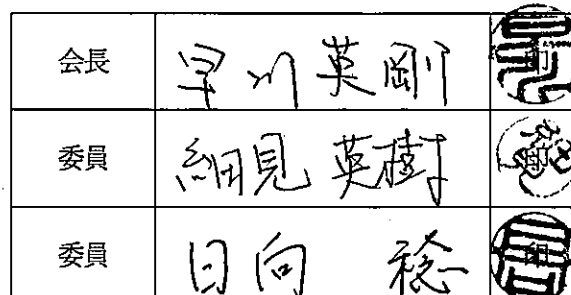 会長 早川英剛 印
委員 細見英樹
委員 日向 稔 印